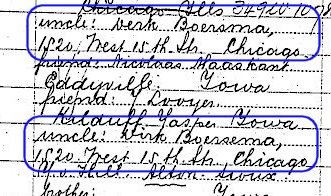 Chicago Ills
uncle: Derk Boersma,
1520, West 15th Str. Chicago
friend: Nicolaas Maaskant
Eddyville Iowa
friend: J
Iowa
uncle: Dirk Boersema,
1520 West 15th Str. Chicago
Alton Sioux
brother: Iowa